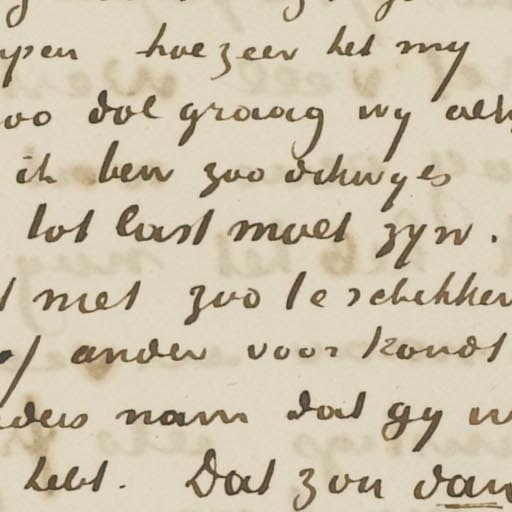 pen hoezeer het my
zoo dol graag wy al
ik ben zoo
tot last moet zyn.
met zoo te schikken
of ander voor kondt
nam dat gy
hebt. Dat zou dan